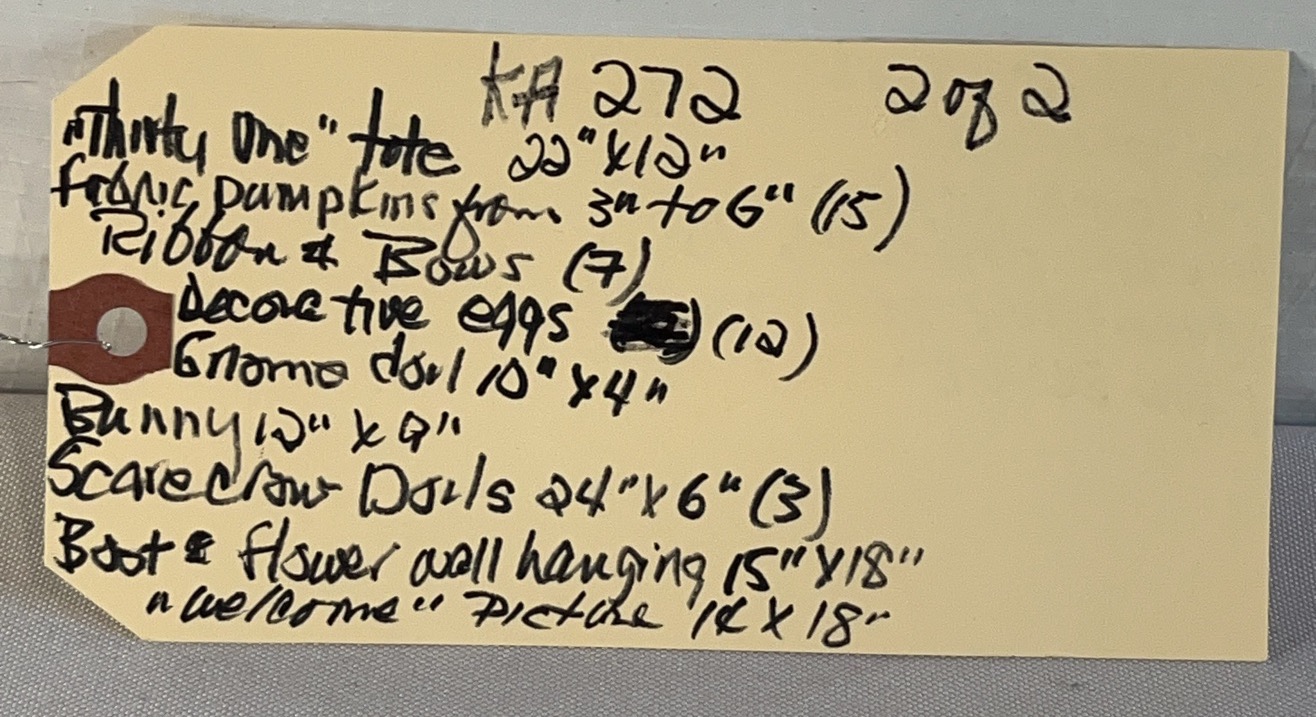 KA 272 2 of 2
"Thirty One" tote 22" X 12"
fabric pumpkins from 3" to 6" (15)
Ribbon & Bows (7)
Decorative eggs (12)
Gnome doll 10" X 4"
Bunny 12" X 9"
Scarecrow Dolls 24" X 6" (3)
Boot & flower wall hanging 15" X 18"
"welcome" Picture X 18"